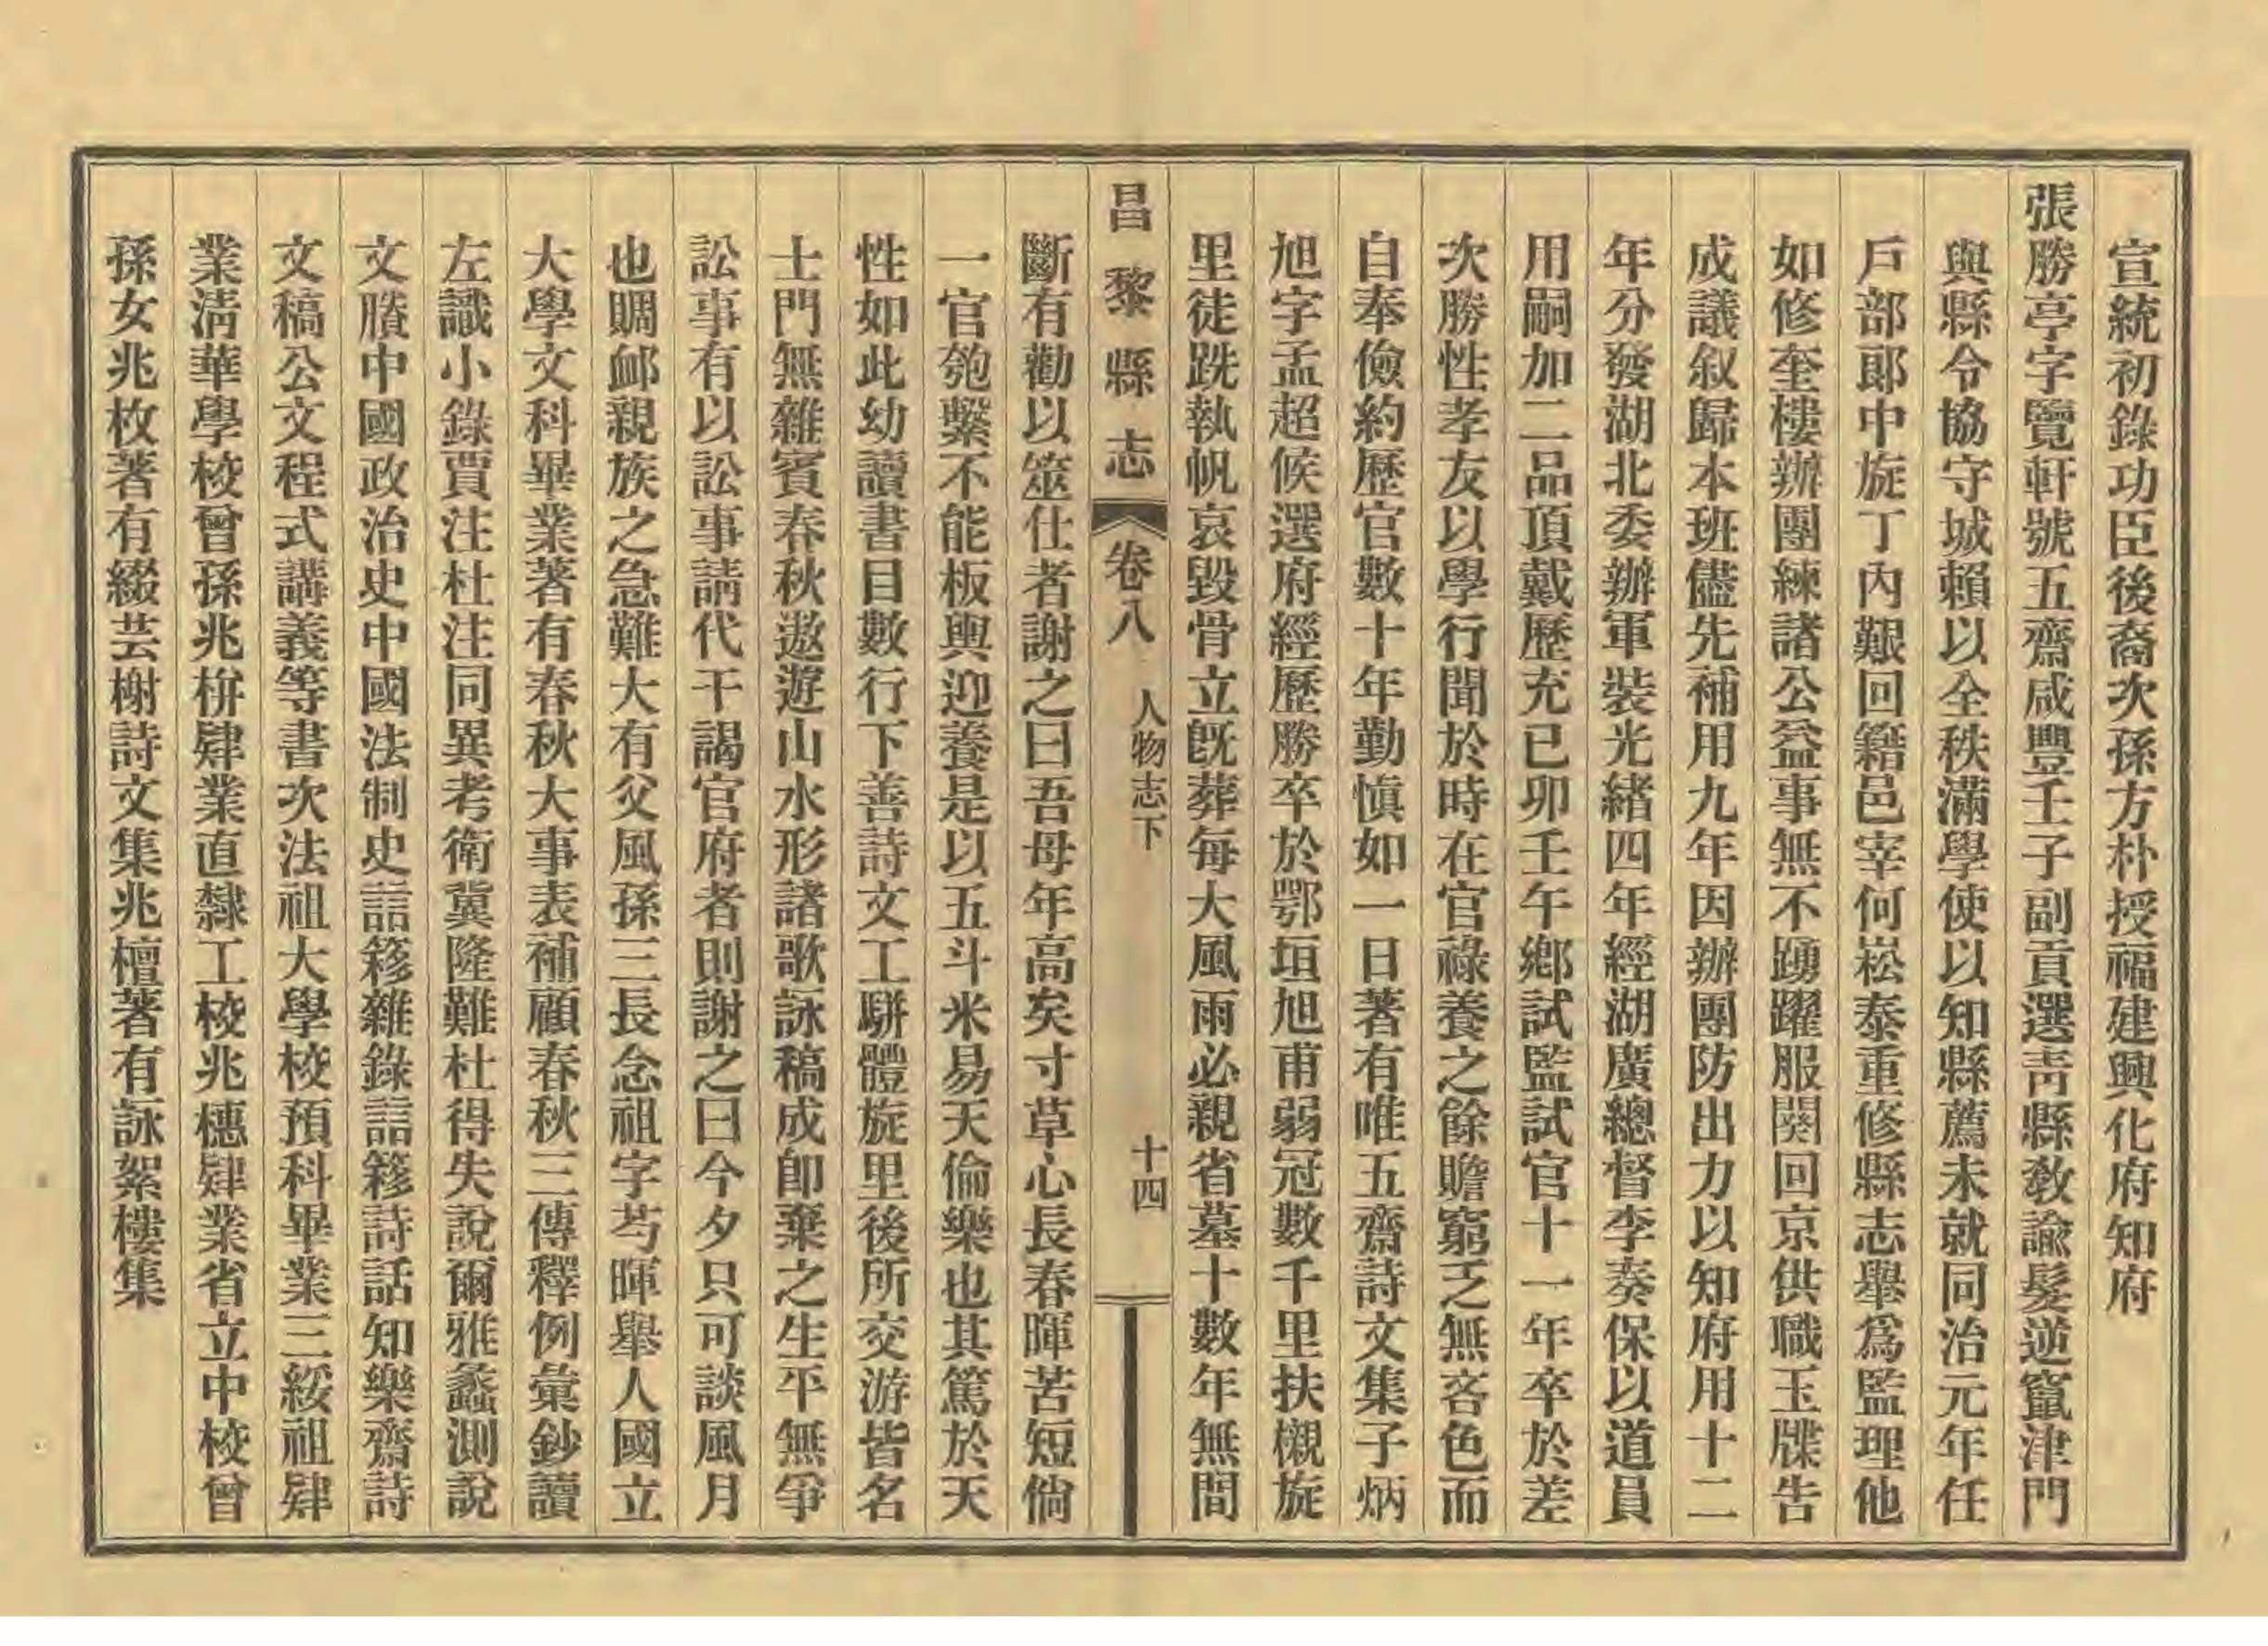 宣統初錄功臣後裔次孫方朴授福建興化府知府
張勝亭字覽軒號五齋咸豐壬子副貢選靑縣敎諭髮逆竄津門
與縣令協守城賴以全秩滿學使以知縣薦未就同治元年任
戶部郞中旋丁內艱回籍邑宰何崧泰重修縣志舉爲監理他
如修奎樓辦團練諸公益事無不踴躍服闋回京供職玉牒告
成議叙歸本班儘先補用九年因辦團防出力以知府用十二
年分發湖北委辦軍裝光緒四年經湖廣總督李奏保以道員
用嗣加二品頂戴歷充己卯壬午鄕試監試官十一年卒於差
次勝性孝友以學行聞於時在官祿養之餘贍窮乏無吝色而
自奉儉約歷官數十年勤愼如一日著有唯五齋詩文集子炳
旭字孟超候選府經歷勝卒於鄂垣旭甫弱冠數千里扶櫬旋
里徒跣執帆哀毀骨立旣葬每大風雨必親省墓十數年無間
昌黎縣志 卷八 人物志下 十四
斷有勸以筮仕者謝之曰吾母年高矣寸草心長春暉苦短倘
一官匏繫不能板輿迎養是以五斗米易天倫樂也其篤於天
性如此幼讀書目數行下善詩文工駢體旋里後所交游皆名
士門無雜賓春秋遨遊山水形諸歌詠稿成卽棄之生平無爭
訟事有以訟事請代干謁官府者則謝之曰今夕只可談風月
也賙卹親族之急難大有父風孫三長念祖字芍暉舉人國立
大學文科畢業著有春秋大事表補顧春秋三傳釋例彙鈔讀
左識小錄賈注杜注同異考衛冀隆難杜得失說爾雅蠡測說
文賸中國政治史中國法制史誩簃雜錄誩簃詩話知樂齋詩
文稿公文程式講義等書次法祖大學校預科畢業三綏祖肄
業淸華學校曾孫兆枬肄業直隸工校兆穗肄業省立中校曾
孫女兆枚著有綴芸榭詩文集兆檀著有詠絮樓集